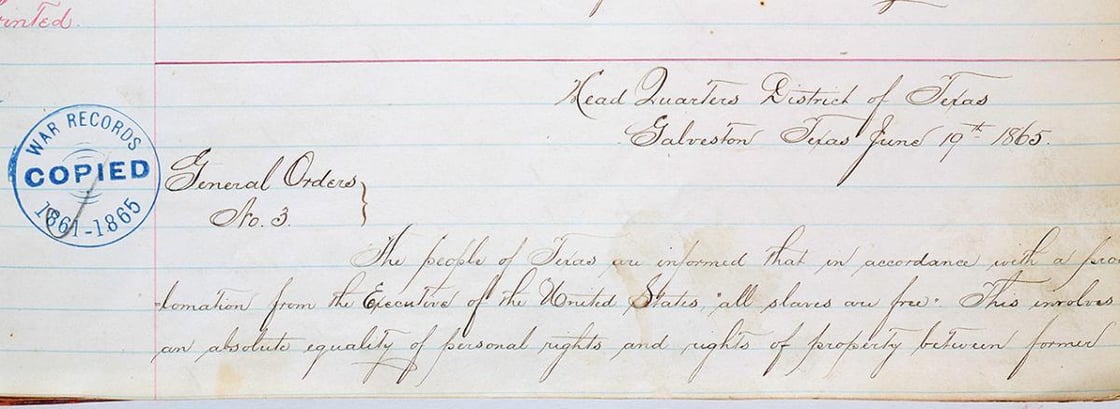 rinted.
Head Quarters District of Texas
Galveston Texas June 19th 1865.
WAR RECORDS
COPIED
1861-1865
General Orders
No. 3.
The people of Texas are informed that in accordance with a pro
-lamation from the Executive of the United States, "all slaves are free". This involves
an absolute equality of personal rights and rights of property between former